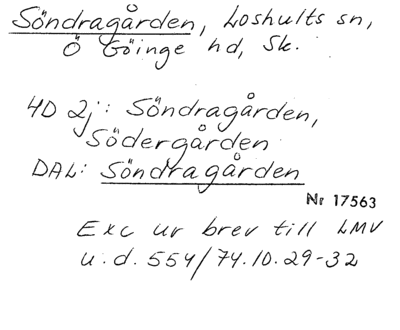 Söndragården, Loshults sn,
Ö Göinge hd, Sk.
4D 2j: Söndragården,
Södergården
DAL: Söndragården
Nr 17563
Exc ur brev till LMV
u.d. 554/74.10.29-32